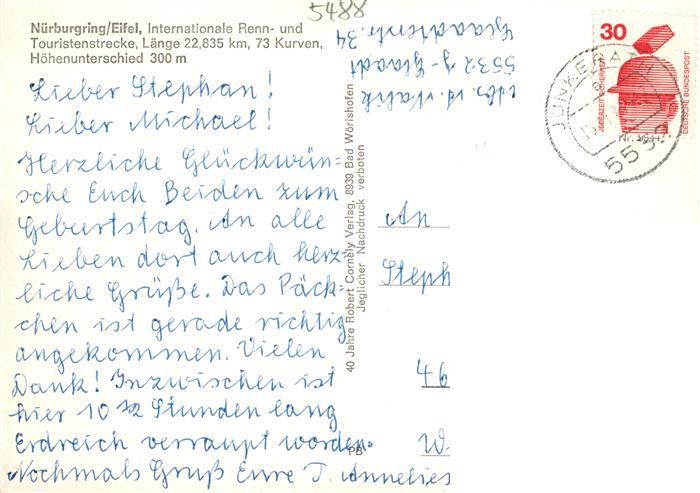 Nürburgring/Eifel, Internationale Renn- und
Touristenstrecke, Länge 22,835 km, 73 Kurven,
Höhenunterschied 300 m
Lieber Stephan!
Lieber Michael!
Herzliche Glückwün-
sche Euch Beiden zum
Geburtstag. An alle
Lieben dort auch herz-
liche Grüße. Das Päck-
chen ist gerade richtig
angekommen. Vielen
Dank! Inzwischen ist
hier 10 1/2 Stunden lang
Erdreich verraupt worden.
Nochmals Gruß Eure T. Annelies
5488
5532
40 Jahre Robert Cornely Verlag, 8939 Bad Wörishofen
Jeglicher Nachdruck verboten
PB
An
Steph
46
W.
30
JEDERZEIT SICHERHEIT
DEUTSCHE BUNDESPOST
JÜNKERATH
553